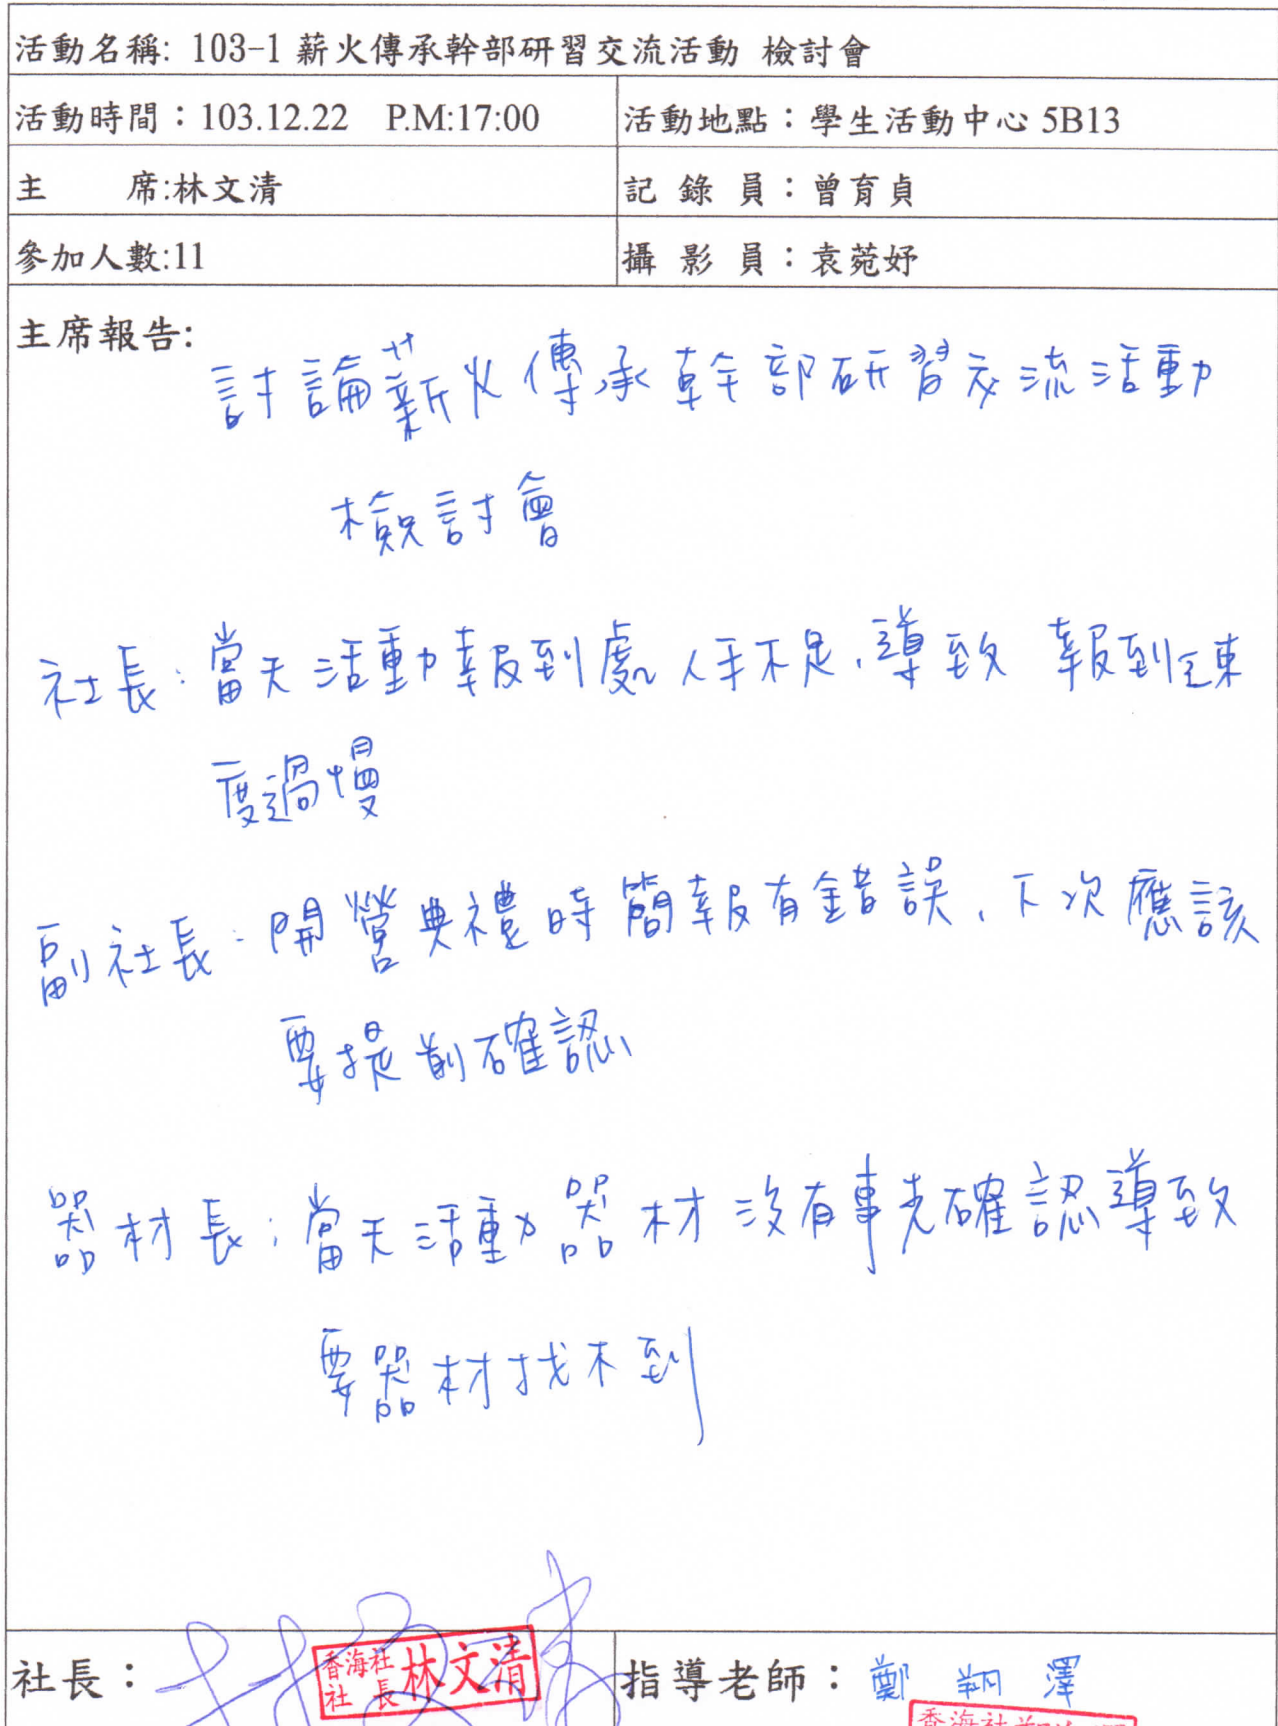 活動名稱: 103-1 薪火傳承幹部研習交流活動 檢討會
活動時間：103.12.22 P.M:17:00 活動地點：學生活動中心 5B13
主 席:林文清 記 錄 員：曾育貞
參加人數:11 攝 影 員：袁菀妤
主席報告:
討論薪火傳承幹部研習交流活動
檢討會
社長：當天活動報到處人手不足，導致 報到速
度過慢
副社長：開營典禮時簡報有錯誤，下次應該
要提前確認
器材長：當天活動器材沒有事先確認導致
要器材找不到
社長： 林文清 香海社 社長 林文清 指導老師：鄭翔澤
香海社